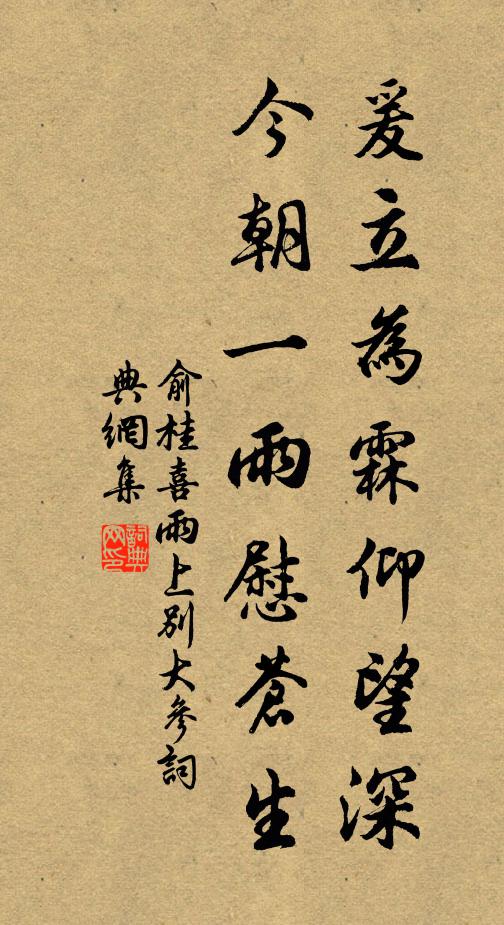 爰立為霖仰望深
今朝一雨慰蒼生
俞桂喜雨上別大參詞
典網集
詞典網印